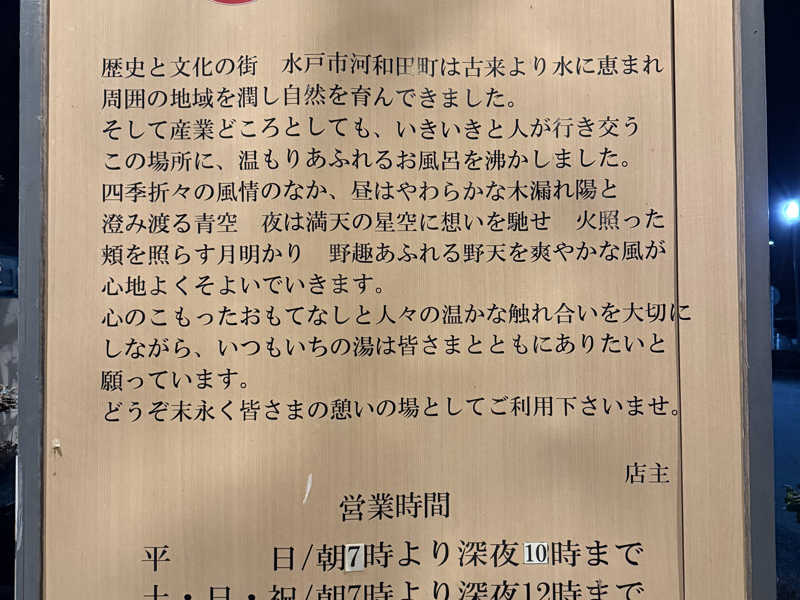 歴史と文化の街　水戸市河和田町は古来より水に恵まれ
周囲の地域を潤し自然を育んできました。
そして産業どころとしても、いきいきと人が行き交う
この場所に、温もりあふれるお風呂を沸かしました。
四季折々の風情のなか、昼はやわらかな木漏れ陽と
澄み渡る青空　夜は満天の星空に想いを馳せ　火照った
頬を照らす月明かり　野趣あふれる野天を爽やかな風が
心地よくそよいでいきます。
心のこもったおもてなしと人々の温かな触れ合いを大切に
しながら、いつもいちの湯は皆さまとともにありたいと
願っています。
どうぞ末永く皆さまの憩いの場としてご利用下さいませ。
店主
営業時間
平　　　日/朝7時より深夜10時まで
土・日・祝/朝7時より深夜12時まで